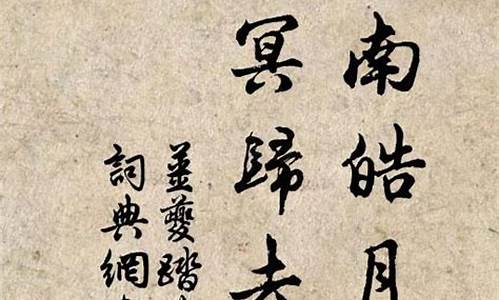 南皓月
冥歸去
姜夔踏
詞典網